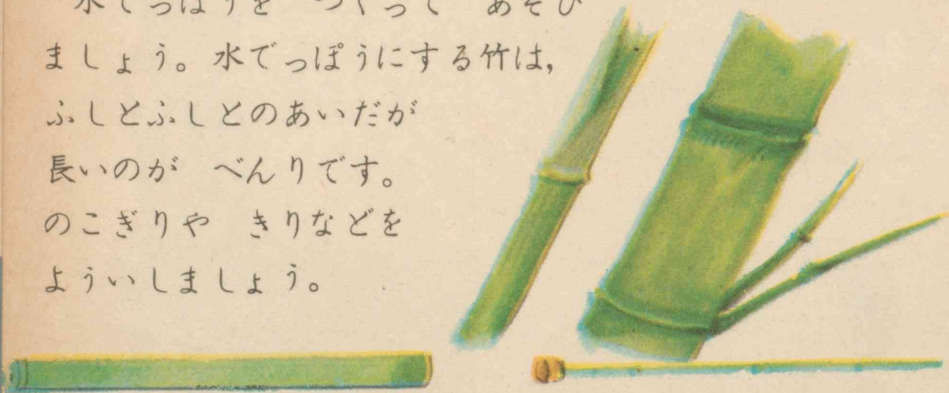 水でっぽうを　つくって　あそび
ましょう。水でっぽうにする竹は,
ふしとふしとのあいだが
長いのが　べんりです。
のこぎりや　きりなどを
よういしましょう。